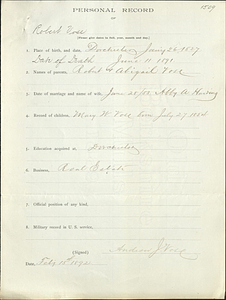 PERSONAL RECORD
OF
Robert Vose
(Please give dates in full, year, month and day.)
1. Place of birth, and date, Dorchester
Date of Death June 11
2. Names of parents, Robert & Abigail Vose
3. Date of marriage and name of wife,
4. Record of children, Mary W. Vose born July 27
5. Education acquired at Dorchester
6. Business, Real Estate
7. Official position of any kind,
8. Military record in U. S. service,
(Signed) Andrew J. Vose
Date, Feby